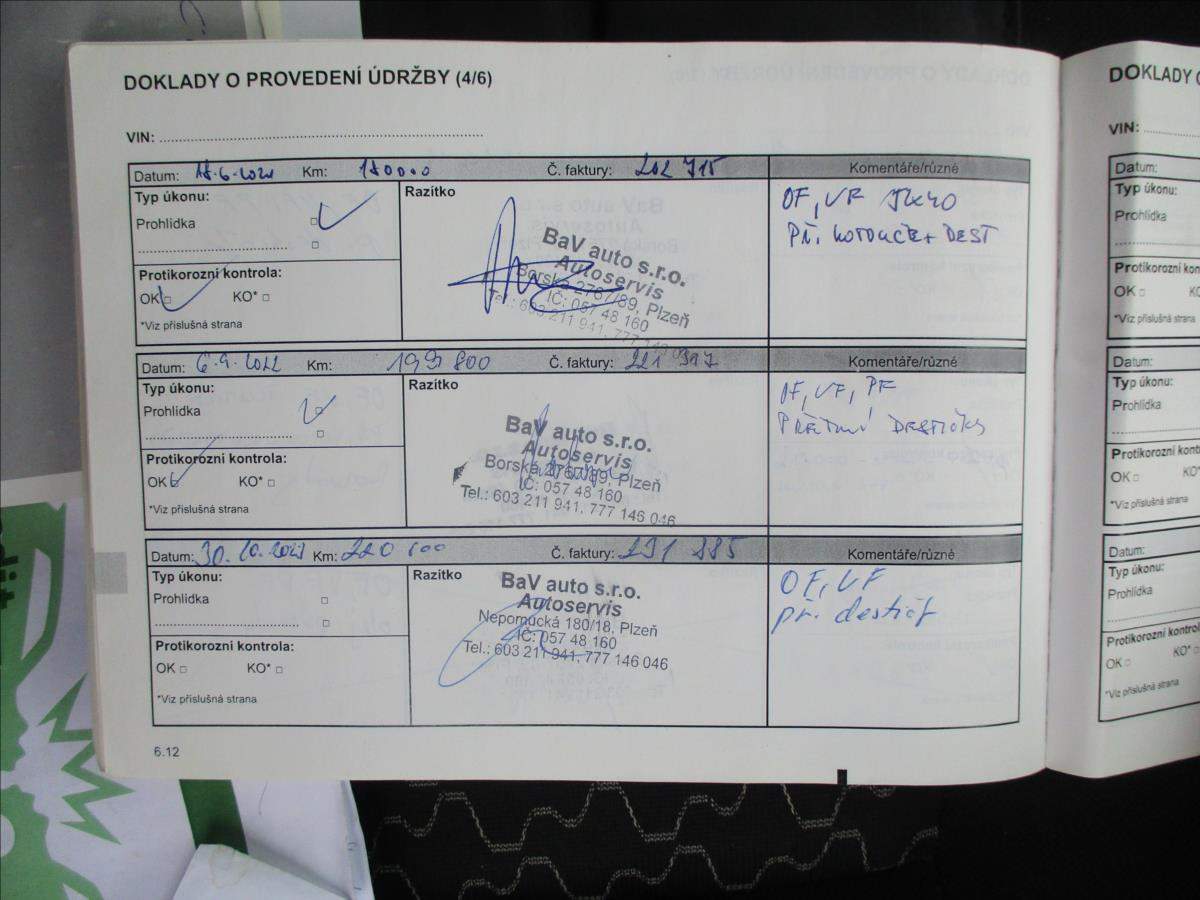 DOKLADY O PROVEDENÍ ÚDRŽBY (4/6)
VIN:
Datum: Km: 180000 Č. faktury: 202 715 Komentáře/různé
Typ úkonu:
Prohlídka
Protikorozní kontrola:
OK KO*
*Viz příslušná strana
Razítko
BaV auto s.r.o.
Autoservis
Borská 2767/89, Plzeň
IČ: 057 48 160
Tel.: 603 211 941, 777 146 046
OF, VF 5W40
PŘ. KOTOUČE + DEST
Datum: 6.9.2022 Km: 199 800 Č. faktury: 221 317 Komentáře/různé
Typ úkonu:
Prohlídka
Protikorozní kontrola:
OK KO*
*Viz příslušná strana
Razítko
BaV auto s.r.o.
Autoservis
Borská 2767/89, Plzeň
IČ: 057 48 160
Tel.: 603 211 941, 777 146 046
OF, VF, PF
PŘEDNÍ DESTIČKY
Datum: 30.10.2023 Km: 220 Č. faktury: 231 885 Komentáře/různé
Typ úkonu:
Prohlídka
Protikorozní kontrola:
OK KO*
*Viz příslušná strana
Razítko
BaV auto s.r.o.
Autoservis
Nepomucká 180/18, Plzeň
IČ: 057 48 160
Tel.: 603 211 941, 777 146 046
OF, VF
př. destič
6.12
DOKLADY
VIN:
Datum:
Typ úkonu:
Prohlídka
Protikorozní kon
OK
*Viz příslušná strana
Datum:
Typ úkonu:
Prohlídka
Protikorozní kont
OK KO*
*Viz příslušná strana
Datum:
Typ úkonu:
Prohlídka
Protikorozní kontrola
OK KO*
*Viz příslušná strana